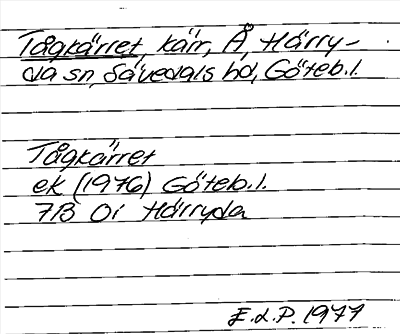 Tågkärret, kärr, Å, Härry-
da sn, Sävedals hd, Göteb. l.
Tågkärret
ek (1976) Göteb. l.
7B 0i Härryda
E.L.P. 1977